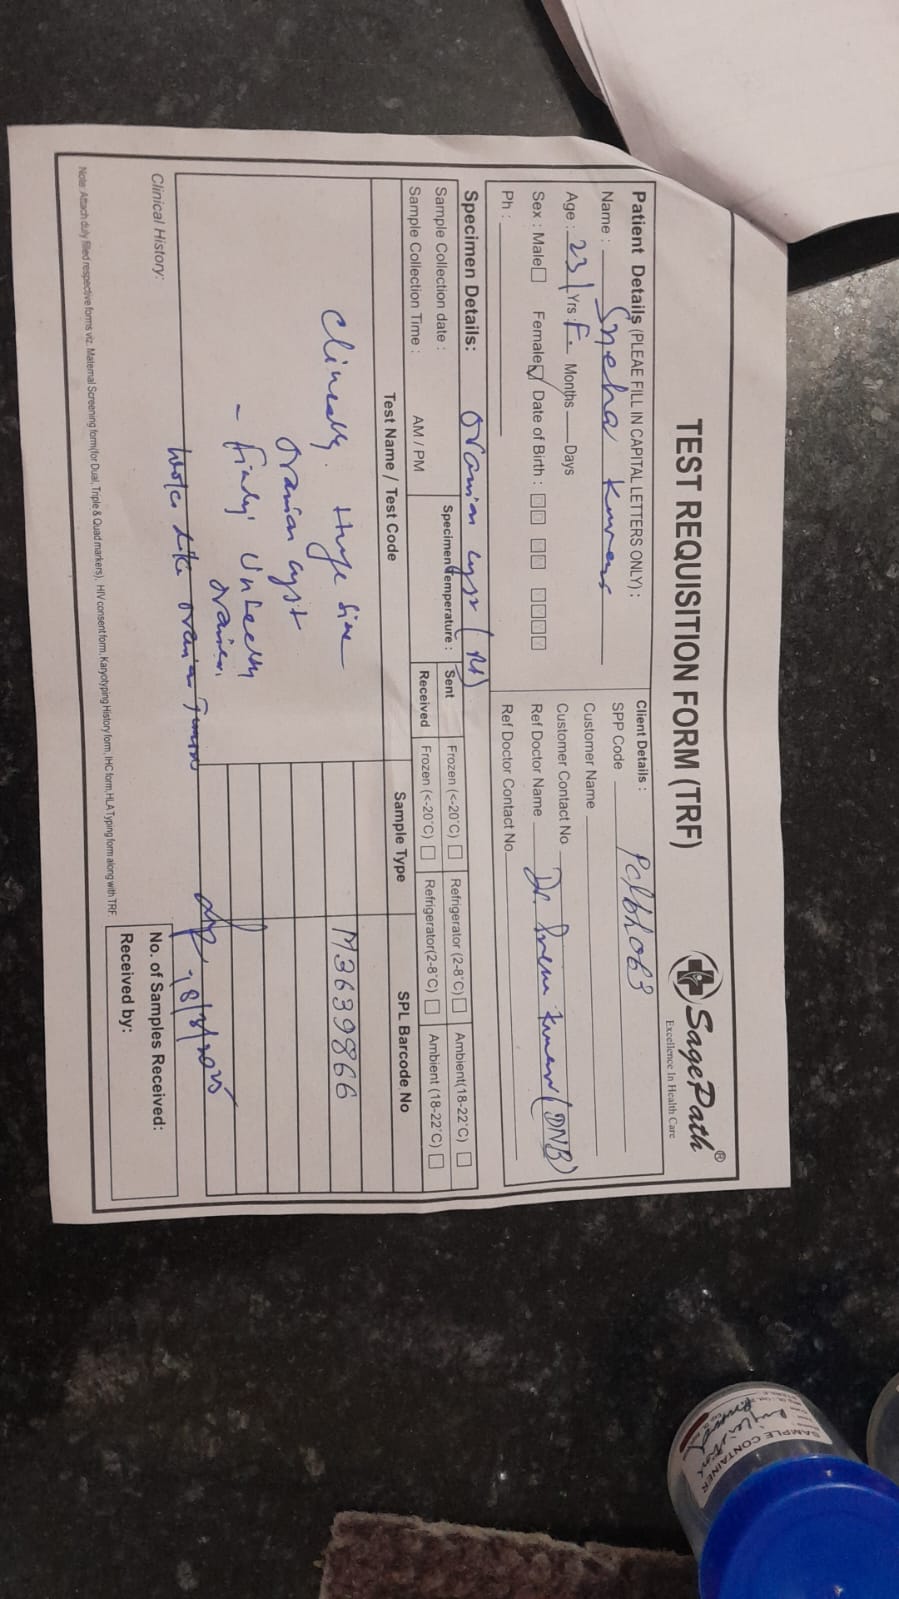 TEST REQUISITION FORM (TRF)
SagePath®
Excellence In Health Care
Patient Details (PLEAE FILL IN CAPITAL LETTERS ONLY) :
Name : Sneha
Age : 23 Yrs F. Months Days
Sex : Male Female ✓ Date of Birth :
Ph :
Client Details :
SPP Code
Customer Name
Customer Contact No
Ref Doctor Name Dr. Kumar (DNB)
Ref Doctor Contact No
Specimen Details: Ovarian cyst (Rt)
Sample Collection date :
Sample Collection Time : AM / PM
Specimen Temperature :
Sent Frozen (<-20°C) Refrigerator (2-8°C) Ambient(18-22°C)
Received Frozen (<-20°C) Refrigerator(2-8°C) Ambient (18-22°C)
Test Name / Test Code
Sample Type
SPL Barcode No
M3639866
Clinically. Huge size
ovarian cyst
-
like ovarian
8/3/2025
Clinical History:
No. of Samples Received:
Received by:
Note: Attach duly filled respective forms viz. Maternal Screening form(for Dual, Triple & Quad markers), HIV consent form, Karyotyping History form, IHC form, HLA Typing form along with TRF.
SAMPLE CONTAINER